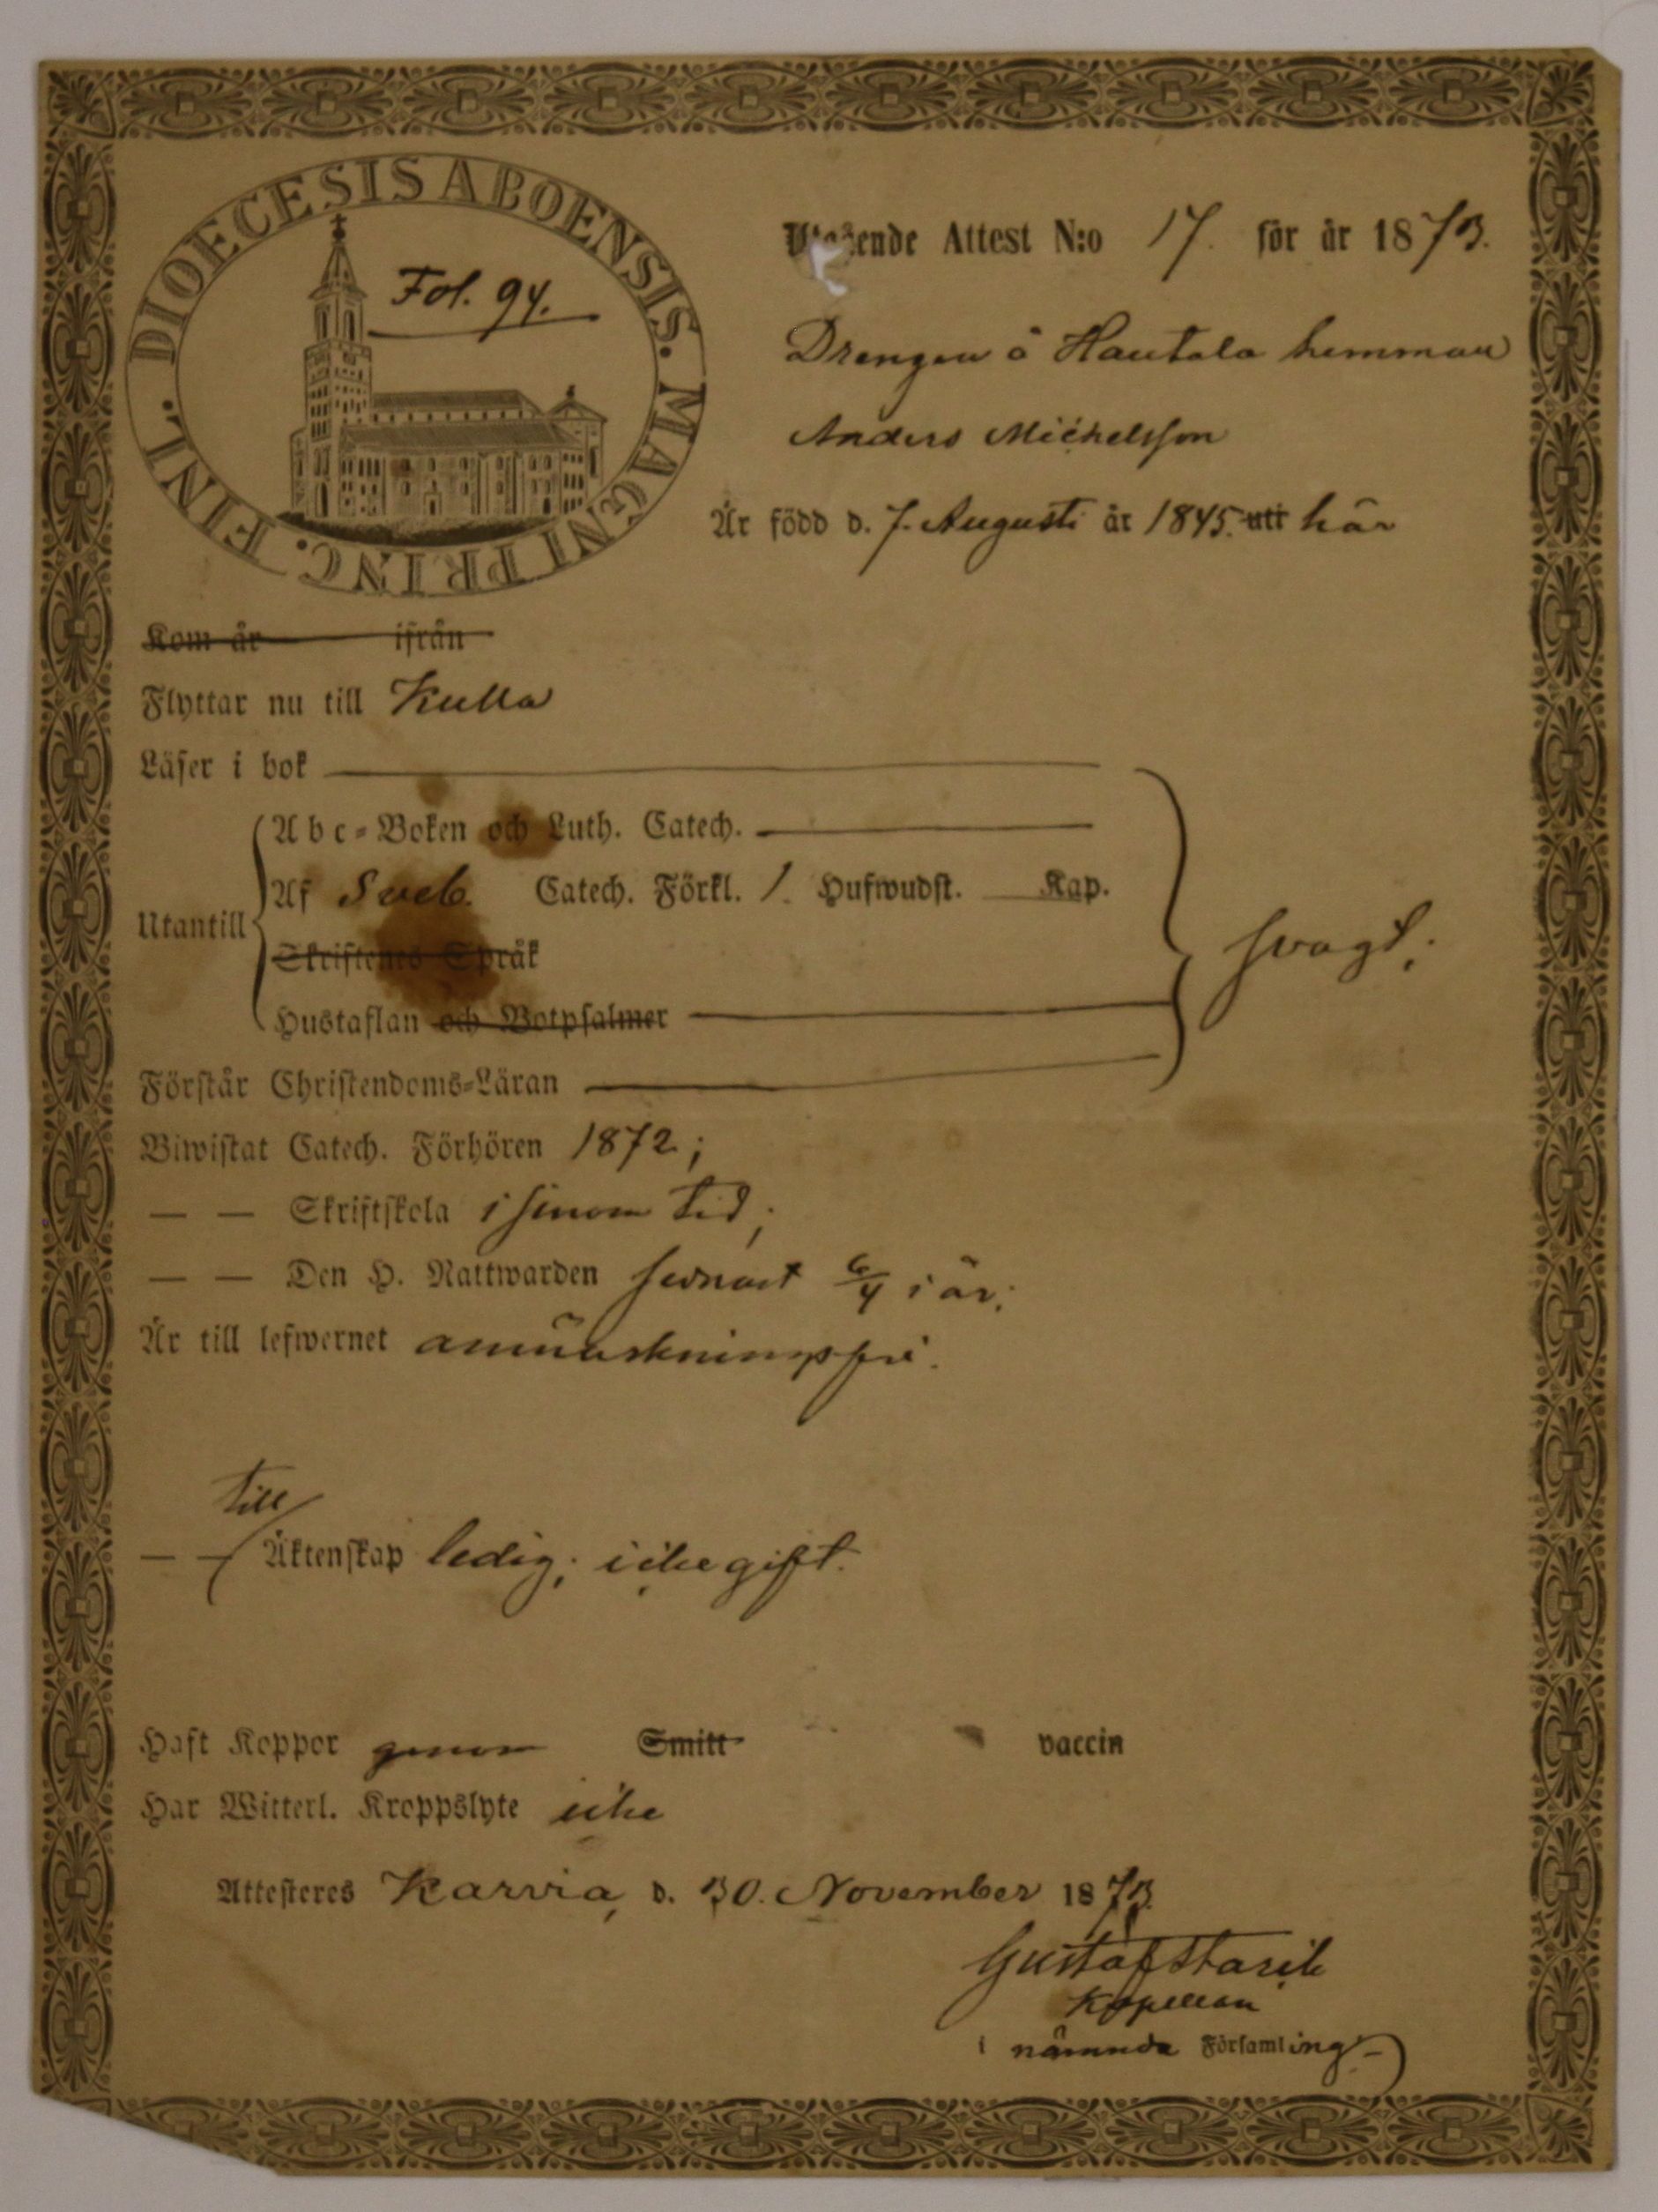 DIOECESIS ABOENSIS. MAGNI PRINC. FINL.
Fol. 94.
Utgående Attest N:o 17. för år 1873.
Drengen å Hautala hemman
Anders Michelsson
Är född d. 7. Augusti år 1845. uti här
Kom år ifrån
Flyttar nu till Kulla
Läser i bok
Utantill
Abc-Boken och Luth. Catech.
Af Sveb. Catech. Förkl. 1. Hufwudst. Kap.
Skriftenes Språk
Hustaflan och Botpsalmer
svagt;
Förstår Christendoms-Läran
Biwistat Catech. Förhören 1872;
— — Skriftskola i sinom tid;
— — Den H. Nattwarden senast 6/4 i år;
Är till lefwernet anmärkningsfri.
till
— — Äktenskap ledig; icke gift.
Haft Koppor genom Smitt vaccin
Har Witterl. Kroppslyte icke
Attesteres Karvia, d. 30. November 1873.
Gustaf
Kapellan
i nämnda Församling